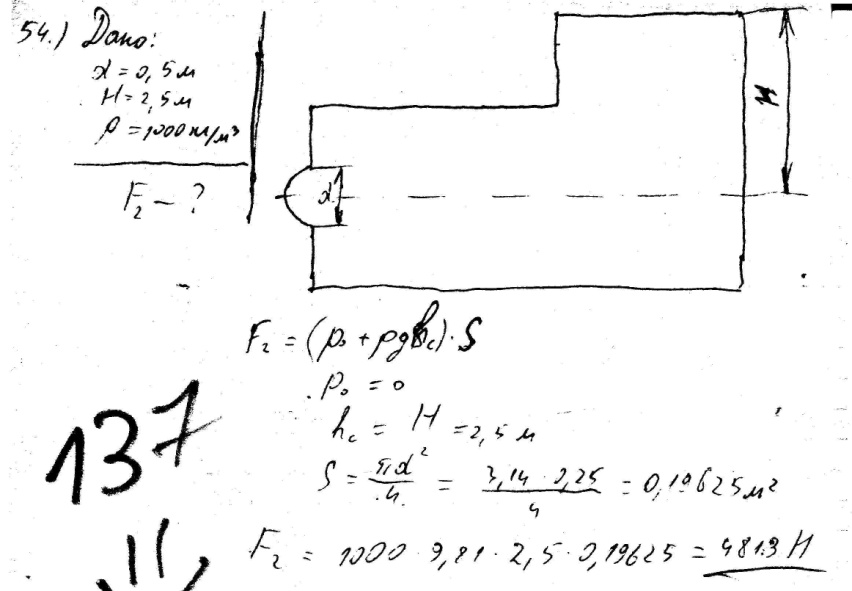 54.) Дано:
d = 0,5 м
H = 2,5 м
ρ = 1000 кг/м³
F₂ - ?
H
d
F₂ = (p₀ + ρgh_c)·S
p₀ = 0
h_c = H = 2,5 м
S = πd²/4 = 3,14 · 0,25/4 = 0,19625 м²
137
F₂ = 1000 · 9,81 · 2,5 · 0,19625 = 4813 Н